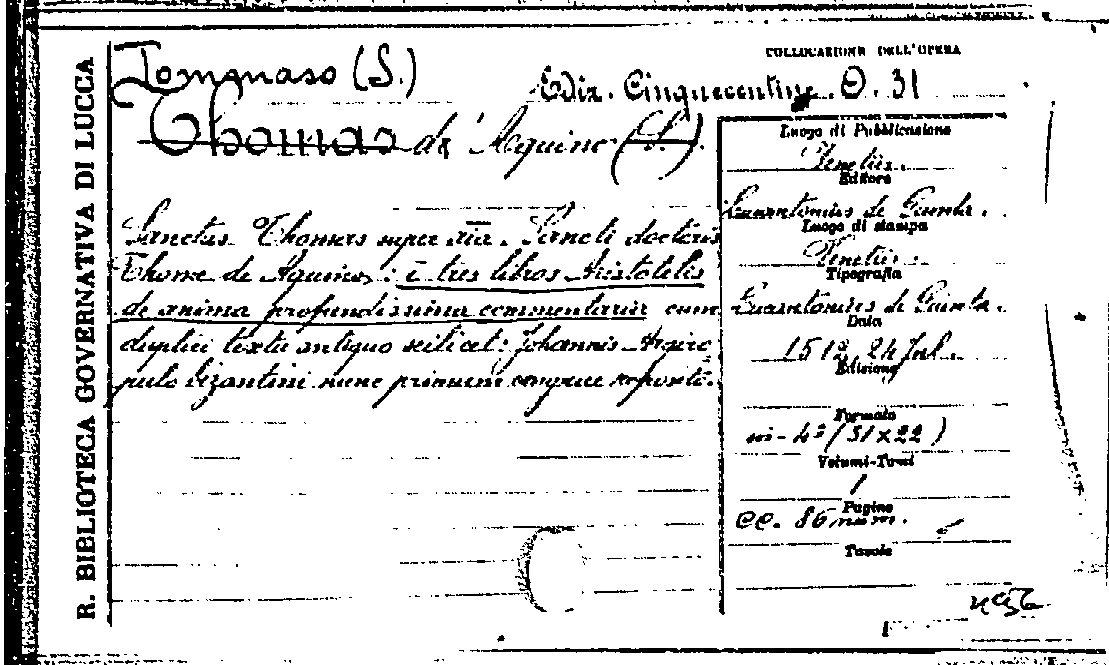 R. BIBLIOTECA GOVERNATIVA DI LUCCA
Tommaso (S.)
Thomas de Aquino (S.).
Sanctus Thomas super
Sancti doctoris
Thome de Aquino: i tres libros Aristotelis
de anima profundissima commentaria cum
duplici textu antiquo scilicet: Johannis Argiro
pulo bizantini nunc primum
COLLOCAZIONE DELL'OPERA
Ediz. Cinquecentine. O. 31
Luogo di Pubblicazione
Venetiis.
Editore
Lucantonius de Giunta.
Luogo di stampa
Venetiis.
Tipografia
Lucantonius de Giunta.
Data
1512, 24 Jul.
Edizione
Formato
in-4° (31x22)
Volumi-Tomi
1
Pagine
cc. 86 num.
Tavole